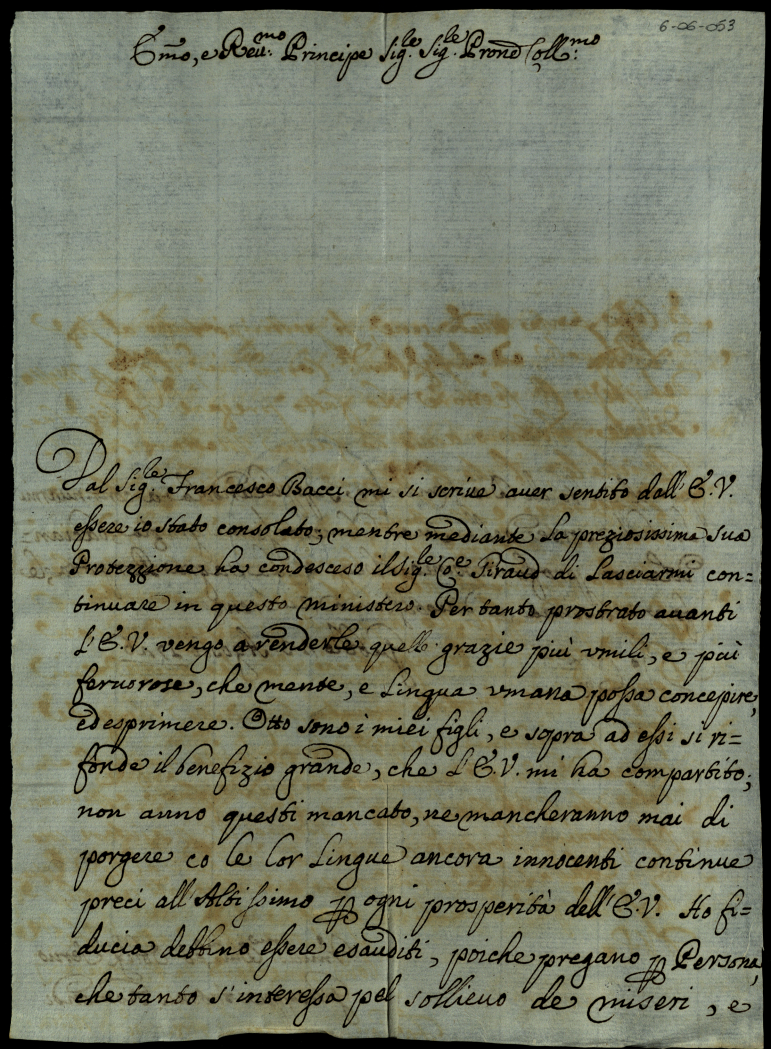 6-06-053
Emo, e Reu:mo Principe Sig:le Sig:le Prone Coll:mo
Dal Sig:le Francesco Bacci mi si scriue auer sentito dall'E.V.
essere io stato consolato, mentre mediante la preziosissima sua
Protezzione ha condesceso il Sig:le Co:e Giraud di lasciarmi con=
tinuare in questo ministero. Per tanto prostrato auanti
l'E.V. vengo a renderle quelle grazie più vmili, e più
feruorose, che mente, e lingua vmana possa concepire,
ed esprimere. Otto sono i miei figli, e sopra ad essi si ri=
fonde il benefizio grande, che l'E.V. mi ha compartito;
non anno questi mancato, ne mancheranno mai di
porgere co le lor lingue ancora innocenti continue
preci all'Altissimo p ogni prosperità dell'E.V. Ho fi=
ducia debbino essere esauditi, poiche pregano p Persona,
che tanto s'interessa pel sollieuo de miseri, e